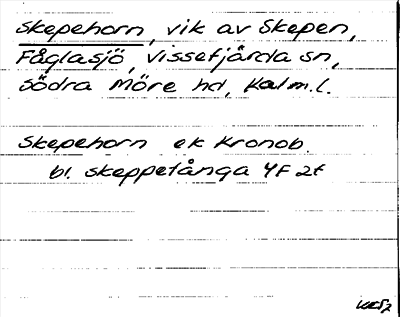 Skepehorn, vik av Skepen,
Fåglasjö, Vissefjärda sn,
Södra Möre hd, Kalm.l.
Skepehorn ek Kronob.
bl. skeppetånga YF 2t